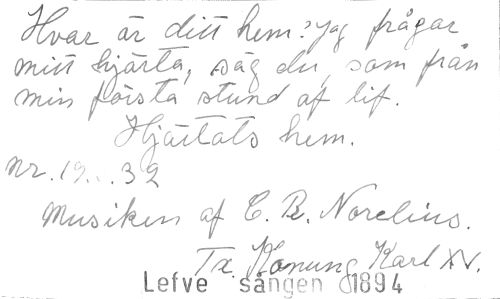 Hvar är ditt hem? Jag frågar
mitt hjärta, säg du, som från
min första stund af lif.
Hjärtats hem.
nr. 19...32
Musiken af C. B. Norelius.
Tx. Konung Karl XV.
Lefve sången 1894